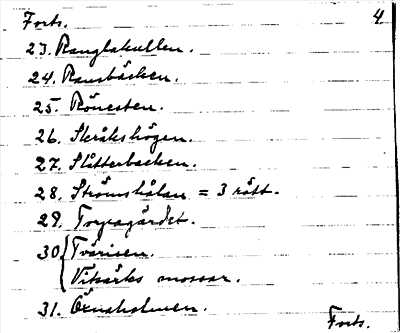 Forts. 4
23. Ranglakullen.
24. Ramsbäcken.
25. Rönesten.
26. Skråkshögen.
27. Slåtterbacken.
28. Strömshålan = 3 rätt.
29. Torpagärdet.
30 { Tvärisen.
Vitsärks mossar.
31. Örnaholmen.
Forts.